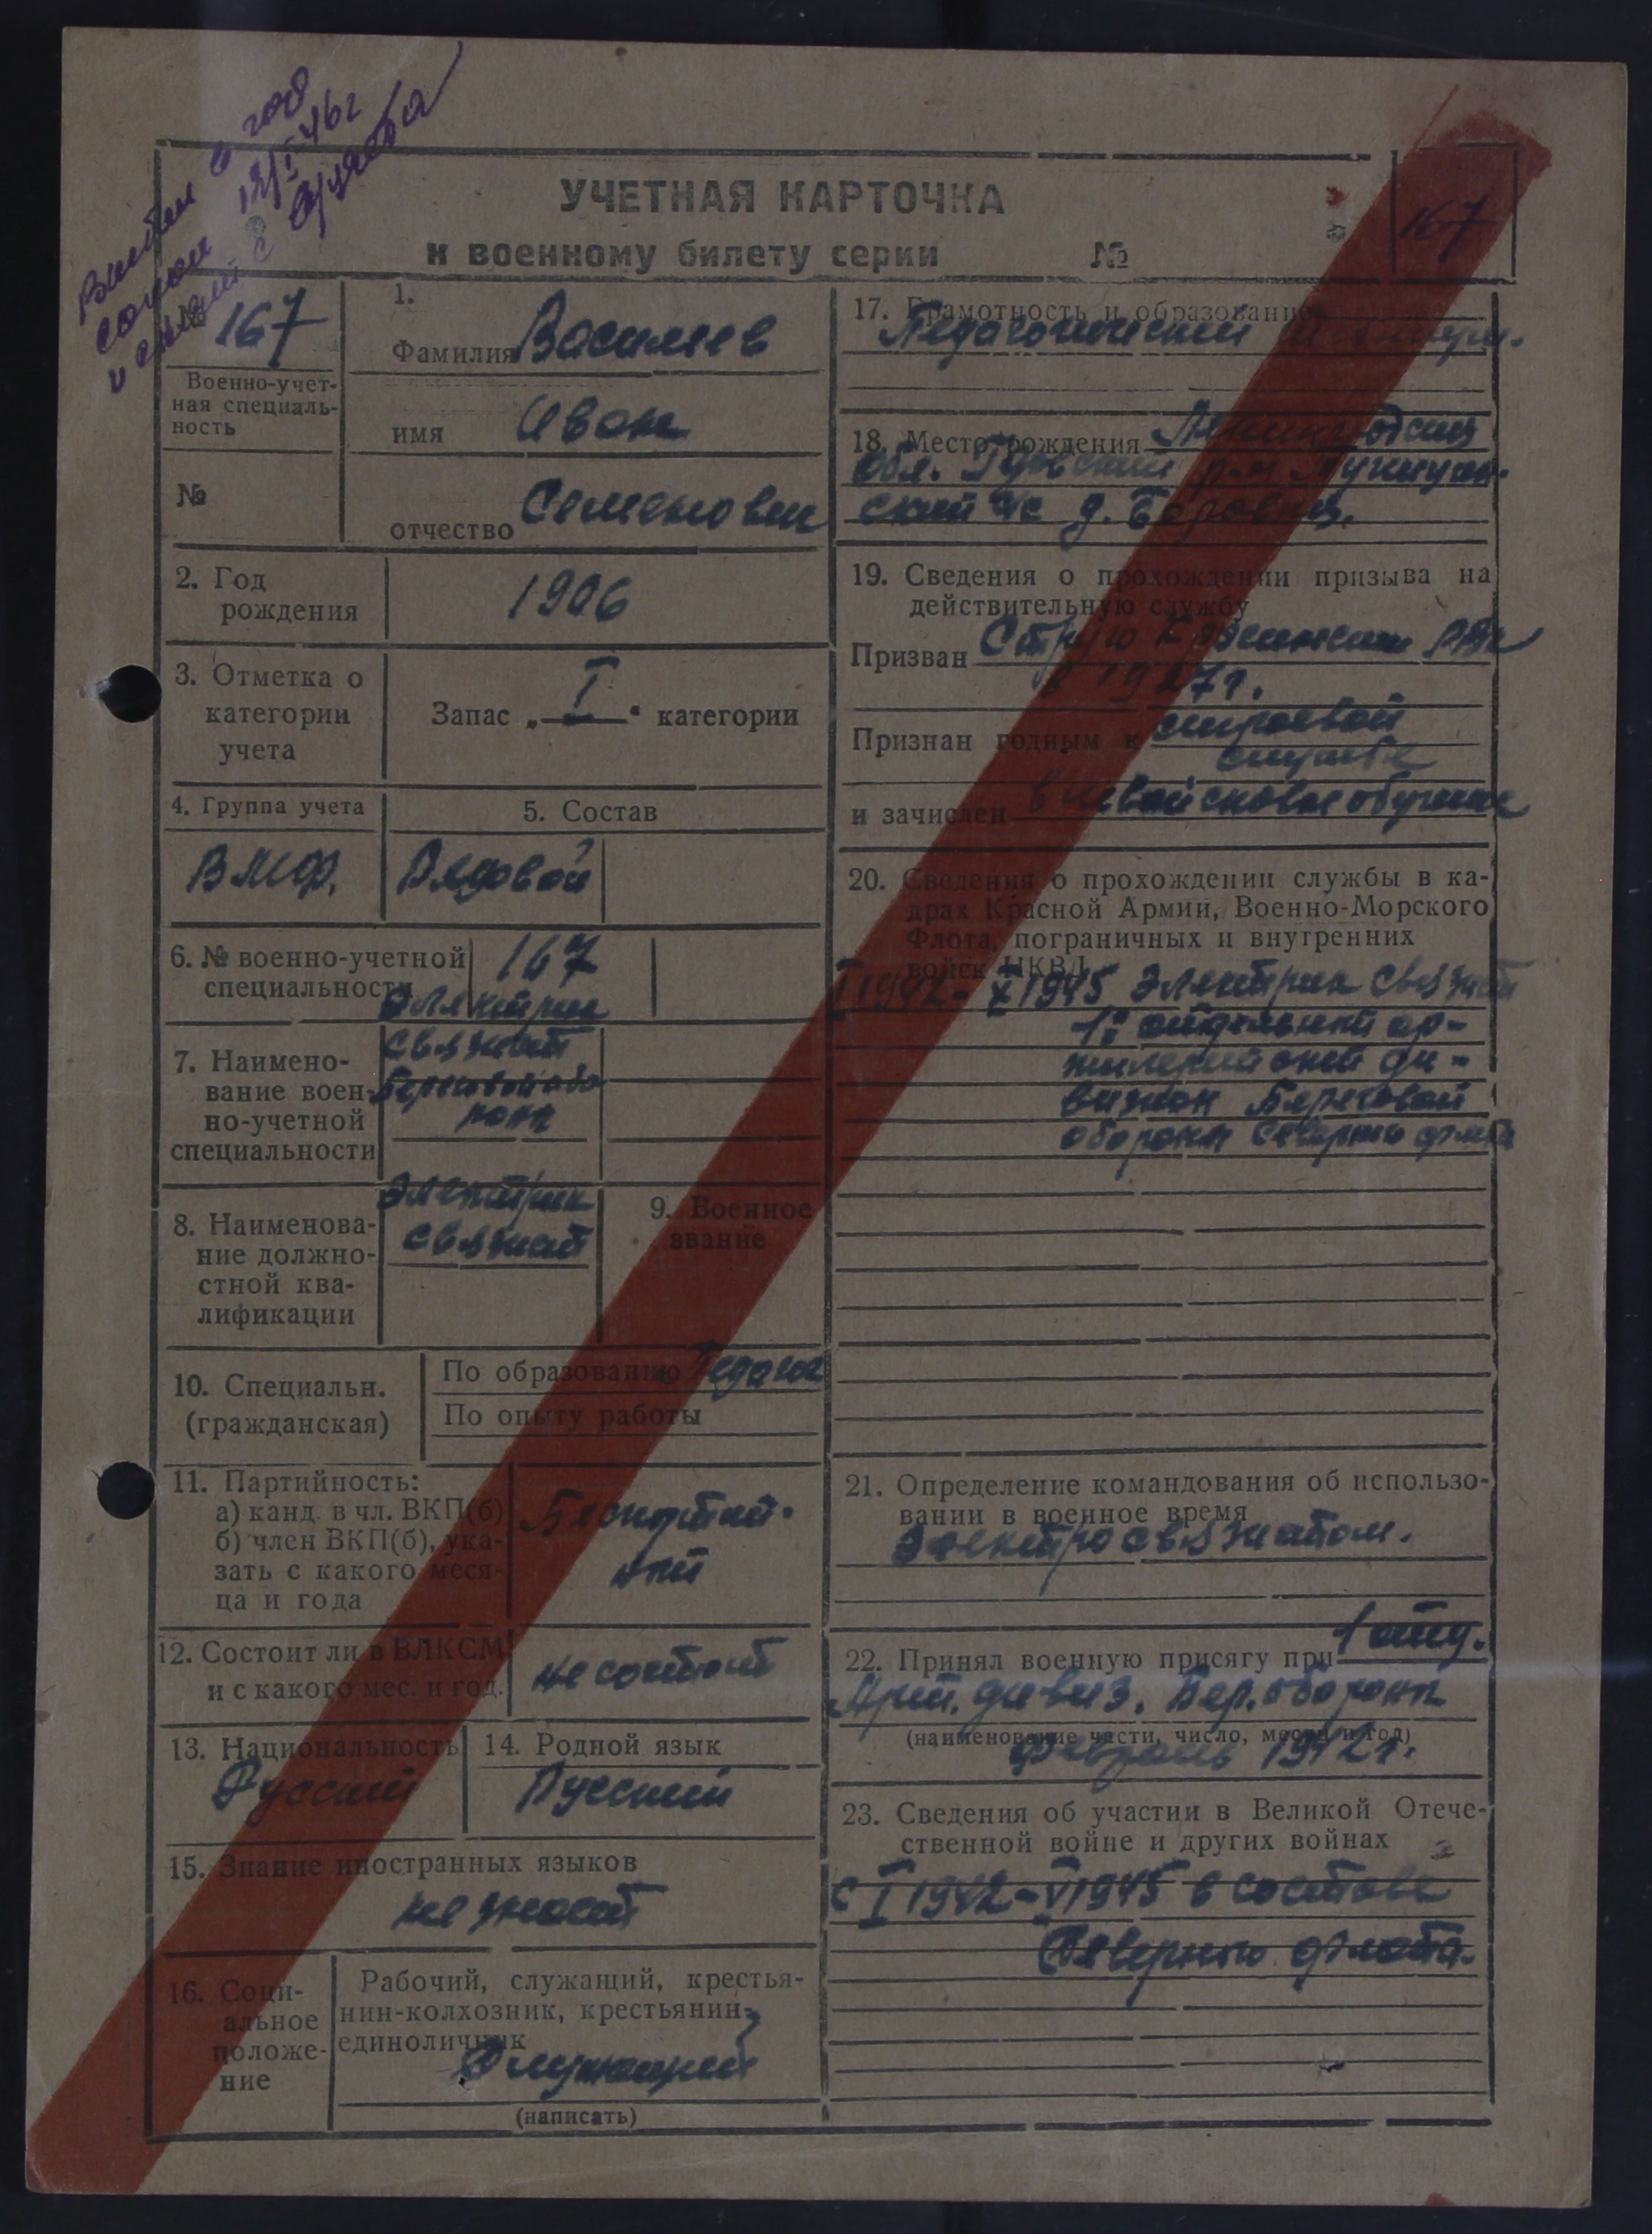 18/I 46г
УЧЕТНАЯ КАРТОЧКА
к военному билету серии №
167
№ 167
Военно-учет-
ная специаль-
ность
№
1.
Фамилия Васильев
имя Иван
отчество Семенович
2. Год
рождения
1906
3. Отметка о
категории
учета
Запас „I“ категории
4. Группа учета
5. Состав
ВМФ.
Рядовой
6. № военно-учетной
специальности
167
7. Наимено-
вание воен-
но-учетной
специальности
Электрик
связист
Береговой обо
роны
8. Наименова-
ние должно-
стной ква-
лификации
Электрик
связист
9. Военное
звание
10. Специальн.
(гражданская)
По образованию Педагог
По опыту работы
11. Партийность:
а) канд. в чл. ВКП(б)
б) член ВКП(б), ука-
зать с какого меся-
ца и года
Беспартий-
ный
12. Состоит ли в ВЛКСМ
и с какого мес. и год.
не состоит
13. Национальность
Русский
14. Родной язык
Русский
15. Знание иностранных языков
не знает
16. Соци-
альное
положе-
ние
Рабочий, служащий, крестья-
нин-колхозник, крестьянин-
единоличник
Служащий
(написать)
17. Грамотность и образование
Педагогический
18. Место рождения Ленинградская
обл.
д.
19. Сведения о прохождении призыва на
действительную службу
Призван Струго Красненским РВК
в 1927г.
Признан годным к строевой
службе
и зачислен
20. Сведения о прохождении службы в ка-
драх Красной Армии, Военно-Морского
Флота, пограничных и внутренних
войск НКВД
I 1942 - X 1945 Электрик связист
1й отдельный ар-
тилерийский ди-
визион Береговой
обороны Северного флота
21. Определение командования об использо-
вании в военное время
Электросвязистом.
22. Принял военную присягу при 1 отд.
Арт. дивиз. Бер. обороны
(наименование части, число, месяц и год)
февраль 1942г.
23. Сведения об участии в Великой Отече-
ственной войне и других войнах
с I 1942 - V 1945 в составе
Северного флота.